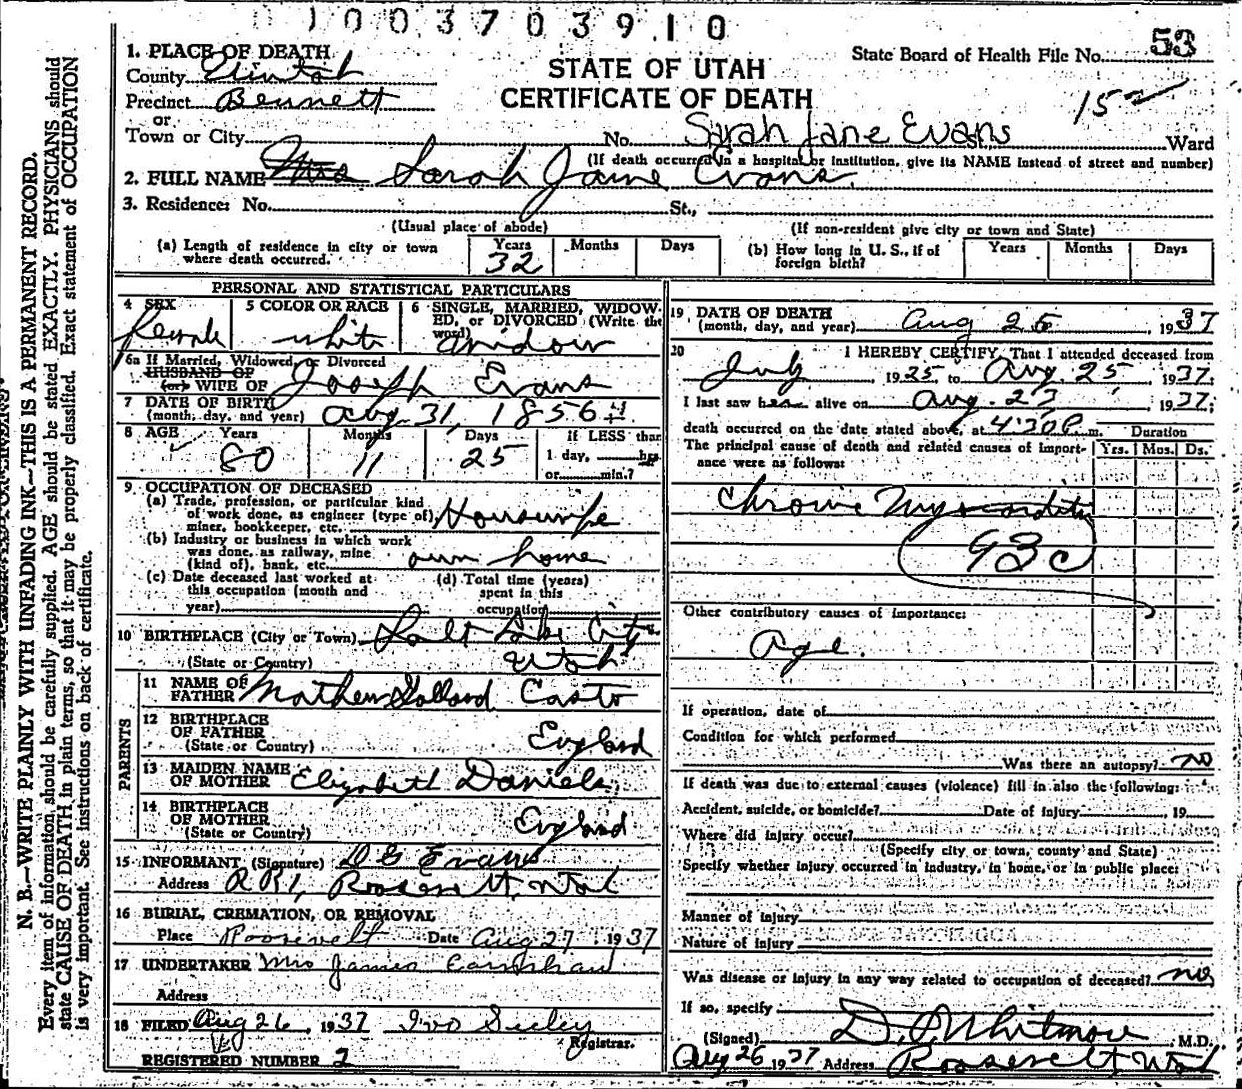 1003703910
1. PLACE OF DEATH
County Uintah
Precinct Bennett
or
Town or City No. St., Ward
Sarah Jane Evans
STATE OF UTAH
CERTIFICATE OF DEATH
State Board of Health File No. 53
15
(If death occurred in a hospital or institution, give its NAME instead of street and number)
2. FULL NAME Mrs Sarah Jane Evans.
3. Residence: No. St.,
(Usual place of abode) (If non-resident give city or town and State)
(a) Length of residence in city or town where death occurred. Years 32 Months Days
(b) How long in U. S., if of foreign birth? Years Months Days
PERSONAL AND STATISTICAL PARTICULARS
4 SEX Female
5 COLOR OR RACE white
6 SINGLE, MARRIED, WIDOWED, or DIVORCED (Write the word) widow
6a If Married, Widowed, or Divorced
HUSBAND OF
(or) WIFE OF Joseph Evans
7 DATE OF BIRTH
(month, day, and year) Aug. 31, 1856
8 AGE Years 80 Months 11 Days 25
If LESS than
1 day, hrs.
or min.?
9 OCCUPATION OF DECEASED
(a) Trade, profession, or particular kind
of work done, as engineer (type of)
miner, bookkeeper, etc. Housewife
(b) Industry or business in which work
was done, as railway, mine
(kind of), bank, etc. own home
(c) Date deceased last worked at
this occupation (month and
year)
(d) Total time (years)
spent in this
occupation
10 BIRTHPLACE (City or Town) Salt Lake City
(State or Country) Utah
PARENTS
11 NAME OF
FATHER Casto
12 BIRTHPLACE
OF FATHER
(State or Country) England
13 MAIDEN NAME
OF MOTHER Elizabeth Daniels
14 BIRTHPLACE
OF MOTHER
(State or Country) England
15 INFORMANT (Signature) D G Evans
Address R R 1, Roosevelt, Utah
16 BURIAL, CREMATION, OR REMOVAL
Place Roosevelt Date Aug 27 1937
17 UNDERTAKER Mrs James
Address
18 FILED Aug 26, 1937 Ivo Seeley
Registrar.
REGISTERED NUMBER 2
19 DATE OF DEATH
(month, day, and year) Aug 25 1937
20 I HEREBY CERTIFY, That I attended deceased from
July 1925 to Aug. 25 1937.
I last saw her alive on Aug. 23 1937;
death occurred on the date stated above, at 4:30 P. m.
Duration
The principal cause of death and related causes of importance were as follows: Yrs. Mos. Ds.
Chronic Myocarditis
93c
Other contributory causes of importance:
Age.
If operation, date of
Condition for which performed
Was there an autopsy? no
If death was due to external causes (violence) fill in also the following:
Accident, suicide, or homicide? Date of injury , 19
Where did injury occur?
(Specify city or town, county and State)
Specify whether injury occurred in industry, in home, or in public place:
Manner of injury
Nature of injury
Was disease or injury in any way related to occupation of deceased? no
If so, specify
(Signed) Whitmore M.D.
Aug 26 1937 Address Roosevelt Utah
N. B.—WRITE PLAINLY WITH UNFADING INK—THIS IS A PERMANENT RECORD.
Every item of information should be carefully supplied. AGE should be stated EXACTLY. PHYSICIANS should
state CAUSE OF DEATH in plain terms, so that it may be properly classified. Exact statement of OCCUPATION
is very important. See instructions on back of certificate.